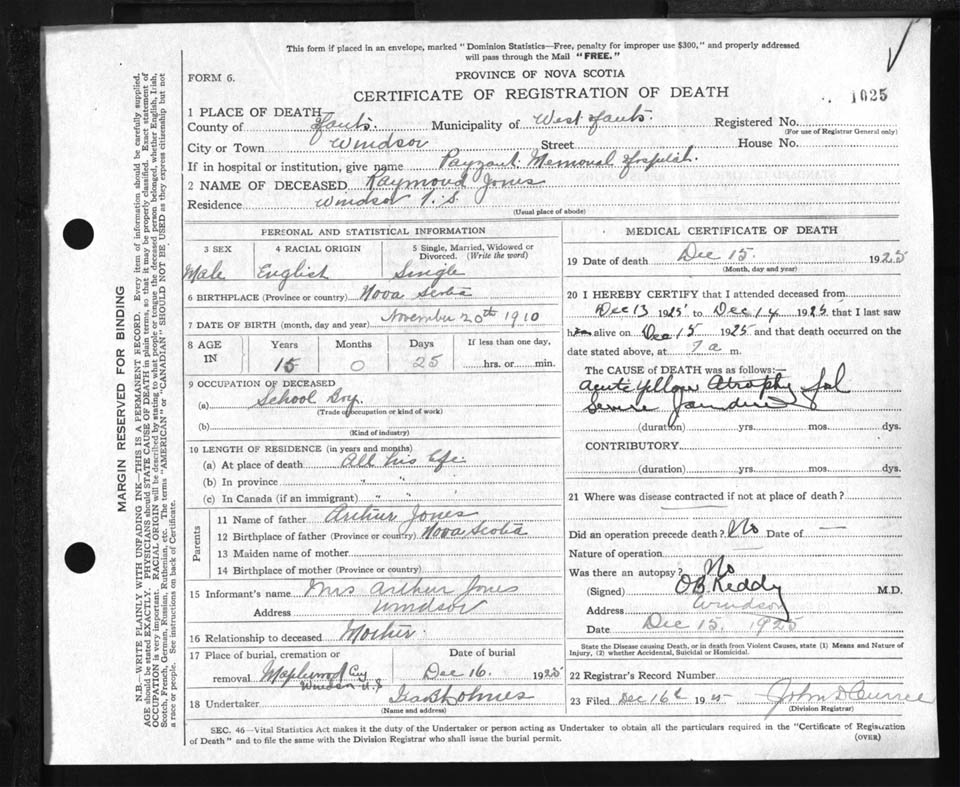 This form if placed in an envelope, marked "Dominion Statistics—Free, penalty for improper use $300," and properly addressed
will pass through the Mail "FREE."
FORM 6.
PROVINCE OF NOVA SCOTIA
CERTIFICATE OF REGISTRATION OF DEATH
1025
1 PLACE OF DEATH
County of Hants. Municipality of West Hants. Registered No.
(For use of Registrar General only)
City or Town Windsor Street House No.
If in hospital or institution, give name Payzant Memorial Hospital.
2 NAME OF DECEASED Raymond Jones
Residence Windsor N.S.
(Usual place of abode)
PERSONAL AND STATISTICAL INFORMATION
3 SEX 4 RACIAL ORIGIN 5 Single, Married, Widowed or
Divorced. (Write the word)
Male English Single
6 BIRTHPLACE (Province or country) Nova Scotia
7 DATE OF BIRTH (month, day and year) November 20th 1910
8 AGE IN Years Months Days If less than one day,
15 0 25 hrs. or min.
9 OCCUPATION OF DECEASED
(a) School Boy.
(Trade occupation or kind of work)
(b)
(Kind of industry)
10 LENGTH OF RESIDENCE (in years and months)
(a) At place of death All his life.
(b) In province " "
(c) In Canada (if an immigrant) " "
Parents
11 Name of father Arthur Jones
12 Birthplace of father (Province or country) Nova Scotia
13 Maiden name of mother
14 Birthplace of mother (Province or country)
15 Informant's name Mrs Arthur Jones
Address Windsor
16 Relationship to deceased Mother.
17 Place of burial, cremation or Date of burial
removal Maplewood Cey Dec 16. 1925
Windsor N.S
18 Undertaker
(Name and address)
MEDICAL CERTIFICATE OF DEATH
19 Date of death Dec 15. 1925
(Month, day and year)
20 I HEREBY CERTIFY that I attended deceased from
Dec 13 1925 to Dec 14 1925 that I last saw
him alive on Dec 15 1925 and that death occurred on
date stated above, at 7 a m.
The CAUSE of DEATH was as follows:
acute yellow Atrophy
Severe Jaundice
(duration) yrs. mos. dys.
CONTRIBUTORY.
(duration) yrs. mos. dys.
21 Where was disease contracted if not at place of death?
Did an operation precede death? No Date of —
Nature of operation
Was there an autopsy? No
(Signed) O B Keddy M.D.
Address Windsor
Date Dec 15. 1925
State the Disease causing Death, or in death from Violent Causes, state (1) Means and Nature of
Injury, (2) whether Accidental, Suicidal or Homicidal.
22 Registrar's Record Number
23 Filed Dec 16 19 25 John D Currie
(Division Registrar)
SEC. 46—Vital Statistics Act makes it the duty of the Undertaker or person acting as Undertaker to obtain all the particulars required in the "Certificate of Registration
of Death" and to file the same with the Division Registrar who shall issue the burial permit. (OVER)
MARGIN RESERVED FOR BINDING
N.B.—WRITE PLAINLY WITH UNFADING INK—THIS IS A PERMANENT RECORD. Every item of information should be carefully supplied.
AGE should be stated EXACTLY. PHYSICIANS should STATE CAUSE OF DEATH in plain terms, so that it may be properly classified. Exact statement of
OCCUPATION is very important. RACIAL ORIGIN will be described by stating to what people or tongue the deceased person belonged, whether English, Irish,
Scotch, French, German, Russian, Ruthenian, etc. The terms "AMERICAN" or "CANADIAN" SHOULD NOT BE USED as they express citizenship but not
a race or people. See instructions on back of Certificate.